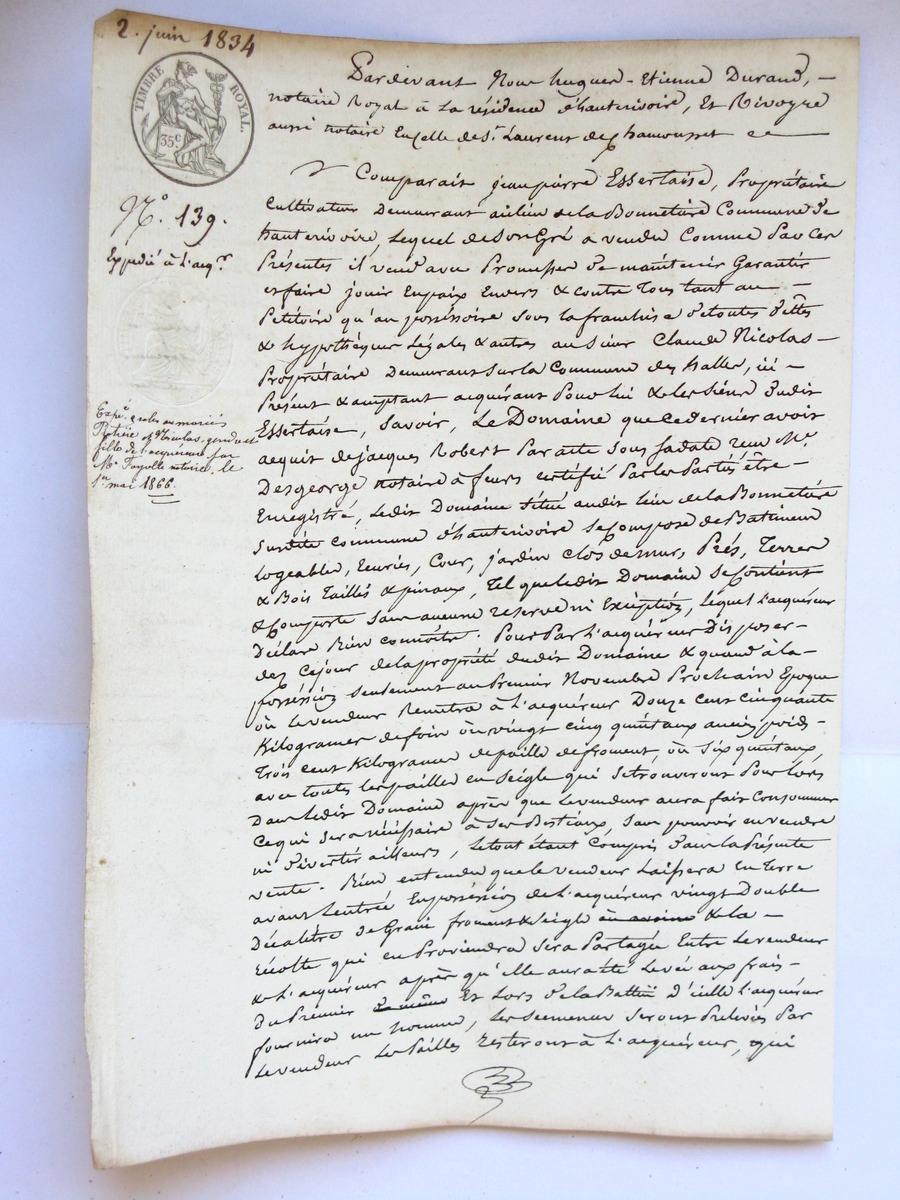 2. juin 1834
TIMBRE ROYAL.
35c
N.° 139.
Expedié à L'acq.r
Exp.é
Nicolas, gendre et
fille de l'acquéreur, par
M.e Fayolle notaire, le
1.er mai 1866.
Pardevant Nous hugues-Etienne Durand, -
notaire Royal à la résidence d'hauterivoire, Et Rivoyre
aussi notaire En celle de S.t Laurent de chamousset
Comparait jean pierre Essertaise, Propriétaire
Cultivateur Demeurant au lieu de la Bonnetiére Commune d'e
hauterivoire, Lequel de son Gré a vendu Comme Par Ces
Présentes il vend avec Promesse d'e maintenir Garantir
et faire jouir En paix Envers & contre Tous tant au -
Petitoire qu'au posséssoire sous la franchise d'etoutes d'ettes
& hypothéques Légales & autres au sieur Claude Nicolas -
Propriétaire Demeurant sur la Commune des halles, ici -
Présent & acceptant acquérant Pour lui & les siens dudit
Essertaise, Savoir, Le Domaine que ce dernier avoit
acquit de jacques Robert Par acte sous sa date reçu M.e
Desgeorge notaire à feurs certifié Par les Parties être -
Enregistré, Ledit Domaine situé audit lieu de la Bonnetiére
Susdite commune d'hauterivoire se Compose de Batiment
logeable, Ecuries, Cour, jardin clos de mur, Prés, Terres
& Bois Taillés & pinaux, Tel que ledit Domaine se Contient
& Comporte sans aucune réserve ni Exception, Lequel l'acquéreur
Déclare Bien connoitre. Pour Par L'acquéreur Disposer -
dez Ce jour de la propriété dudit Domaine & quand à la -
posséssion seulement au Premier Novembre Prochain Epoque
où Le vendeur Remettra à L'acquéreur Douze cent cinquante
Kilogrames de foin ou vingt cinq quintaux ancien poids -
Trois cent Kilogrames de paille de froment, ou six quintaux
avec toutes les pailles en seigle qui se trouveront Pour lors
Dans ledit Domaine après que le vendeur aura fait consommer
Ce qui sera nécéssaire à ses Bestiaux, sans pouvoir en vendre
ni d'ivertir ailleurs, Le tout étant Compris dans la Présente
vente. Bien entendu que le vendeur Laissera en Terre
avant L'entrée En posséssion de L'acquéreur vingt Double
Décalitre de Grain froment & seigle & la -
récolte qui en Proviendra sera Partagée Entre Le vendeur
& L'acquéreur après qu'elle aura été Levée aux frais -
du Premier Et Lors de la Battue d'icelle l'acquéreur
fournira un homme, Les semences seront Prélevées Par
Le vendeur Les Pailles resteront à L'acquéreur, qui